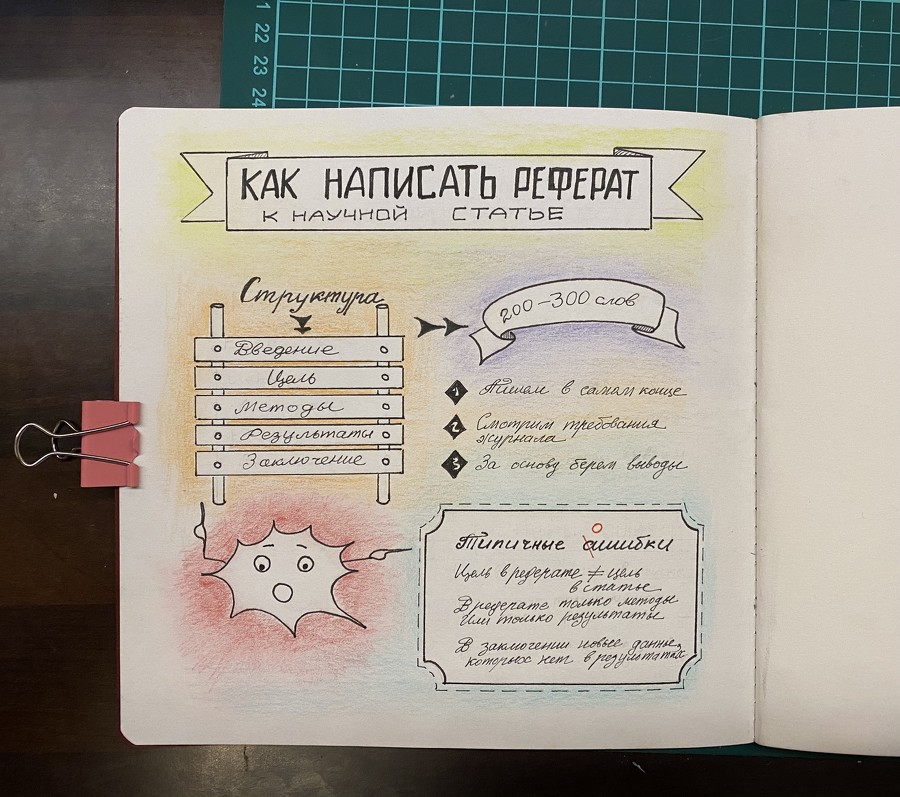 21
22
23
24
КАК НАПИСАТЬ РЕФЕРАТ
К НАУЧНОЙ СТАТЬЕ
Структура
Введение
Цель
Методы
Результаты
Заключение
200-300 слов
1 Пишем в самом конце
2 Смотрим требования
журнала
3 За основу берем выводы
Типичные ашибки
о
Цель в реферате ≠ цель
в статье
В реферате только методы
или только результаты
В заключении новые данные,
которых нет в результатах